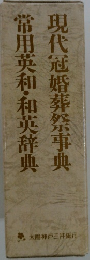 現代冠婚葬祭事典
常用英和・和英辞典